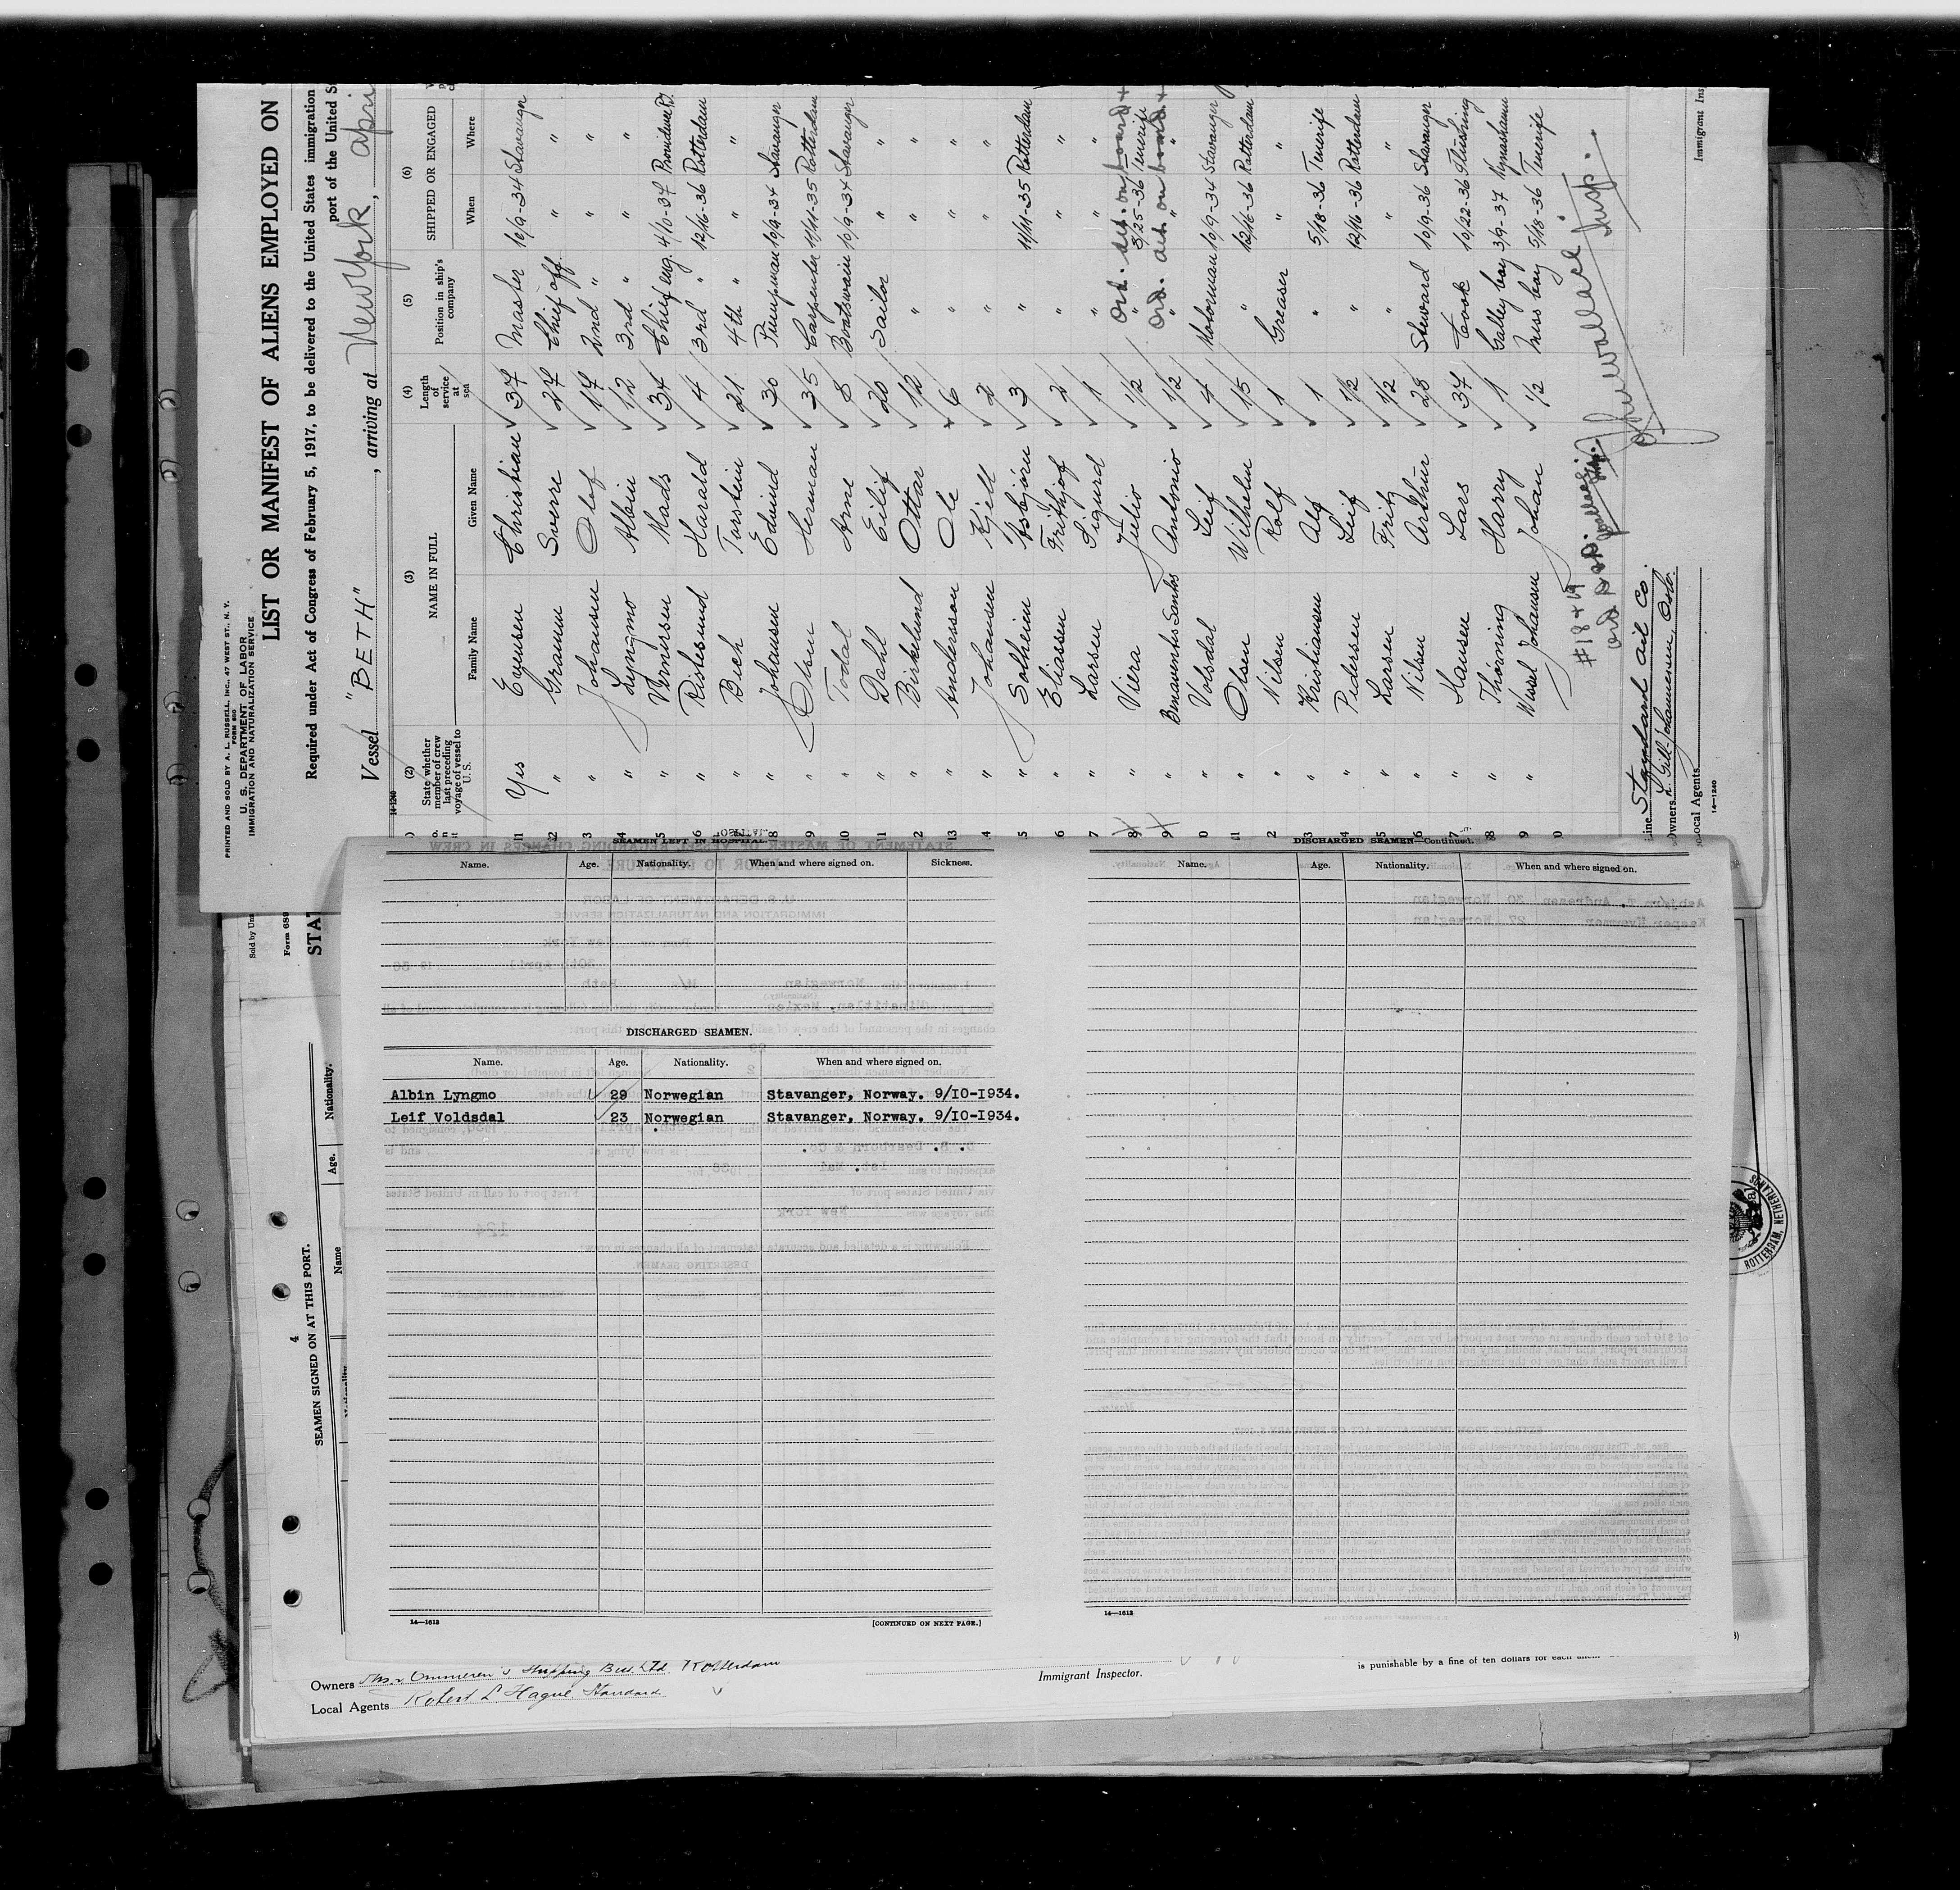 PRINTED AND SOLD BY A. L. RUSSELL, INC., 47 WEST ST., N. Y.
FORM 680
U. S. DEPARTMENT OF LABOR
IMMIGRATION AND NATURALIZATION SERVICE
LIST OR MANIFEST OF ALIENS EMPLOYED ON
Required under Act of Congress of February 5, 1917, to be delivered to the United States immigration
port of the United St
Vessel "BETH", arriving at New York, Apri
14-1240
(2) (3) (4) (5) (6)
State whether member of crew last preceding voyage of vessel to U. S. NAME IN FULL Length of service at sea Position in ship's company SHIPPED OR ENGAGED
Family Name Given Name When Where
1 Yes Egensen Christian 37 Master 10/9-34 Stavanger
2 " Gramm Sverre 27 Chief off. " "
3 " Johansen Olof 17 2nd " " "
4 " Lyngmo Albin 12 3rd " " "
5 " Mads 34 Chief eng. 4/10-37 Providence R.I.
6 " Ristesund Harald 4 3rd " 12/16-36 Rotterdam
7 " Bech Torstein 21 4th " " "
8 " Johansen Edvind 30 Pumpman 10/9-34 Stavanger
9 " Olsen Herman 35 Carpenter 11/11-35 Rotterdam
10 " Todal Arne 8 Boatswain 10/9-34 Stavanger
11 " Dahl Eilif 20 Sailor " "
2 " Birkelund Ottar 1/2 " " "
13 " Anderson Ole 6 " " "
4 " Johansen Kjell 2 " " "
5 " Solheim Asbjørn 3 " 11/11-35 Rotterdam
6 " Eliasen Frithjof 2 " " "
7 " Larsen Sigurd 1 " " "
8 " Viera Julio 1/2 " 3/25-36 Tenerife
Ord. det. on board +
9 " Benavuntes Santos Antonio 1/2 " " "
Ord. det. on board +
0 " Volsdal Leif 4 Motorman 10/9-34 Stavanger
1 " Olsen Wilhelm 15 " 12/16-36 Rotterdam
2 " Nilsen Rolf 1 Greaser " "
3 " Kristiansen Alf 1 " 5/18-36 Tenerife
4 " Pedersen Leif 1/2 " 12/16-36 Rotterdam
5 " Larsen Fritz 1/2 " " "
6 " Nilsen Arthur 28 Steward 10/9-36 Stavanger
7 " Hansen Lars 37 Cook 10/22-36 Flushing
8 " Thorning Harry 1 Galley boy 3/9-37 Nynashamn
9 " Wessel Johansen Johan 1/2 Mess boy 5/18-36 Tenerife
0
#18 + 19
Wallace Insp.
Line Standard Oil Co.
Owners L. Gill-Johannessen, Oslo.
Local Agents
14-1240
Immigrant Ins
Sold by Un
Form 689
STA
4
SEAMEN SIGNED ON AT THIS PORT.
Name Age. Nationality.
SEAMEN LEFT IN HOSPITAL.
Name. Age. Nationality. When and where signed on. Sickness.
DISCHARGED SEAMEN.
Name. Age. Nationality. When and where signed on.
Albin Lyngmo 29 Norwegian Stavanger, Norway. 9/10-1934.
Leif Voldsdal 23 Norwegian Stavanger, Norway. 9/10-1934.
14—1612
[CONTINUED ON NEXT PAGE.]
DISCHARGED SEAMEN—Continued.
Name. Age. Nationality. When and where signed on.
14—1612
ROTTERDAM, NETHERLANDS
Owners Phs. v. Ommeren's Shipping Bus. Ltd. Rotterdam
Local Agents Robert L. Hague Standard
Immigrant Inspector.
is punishable by a fine of ten dollars for each alien